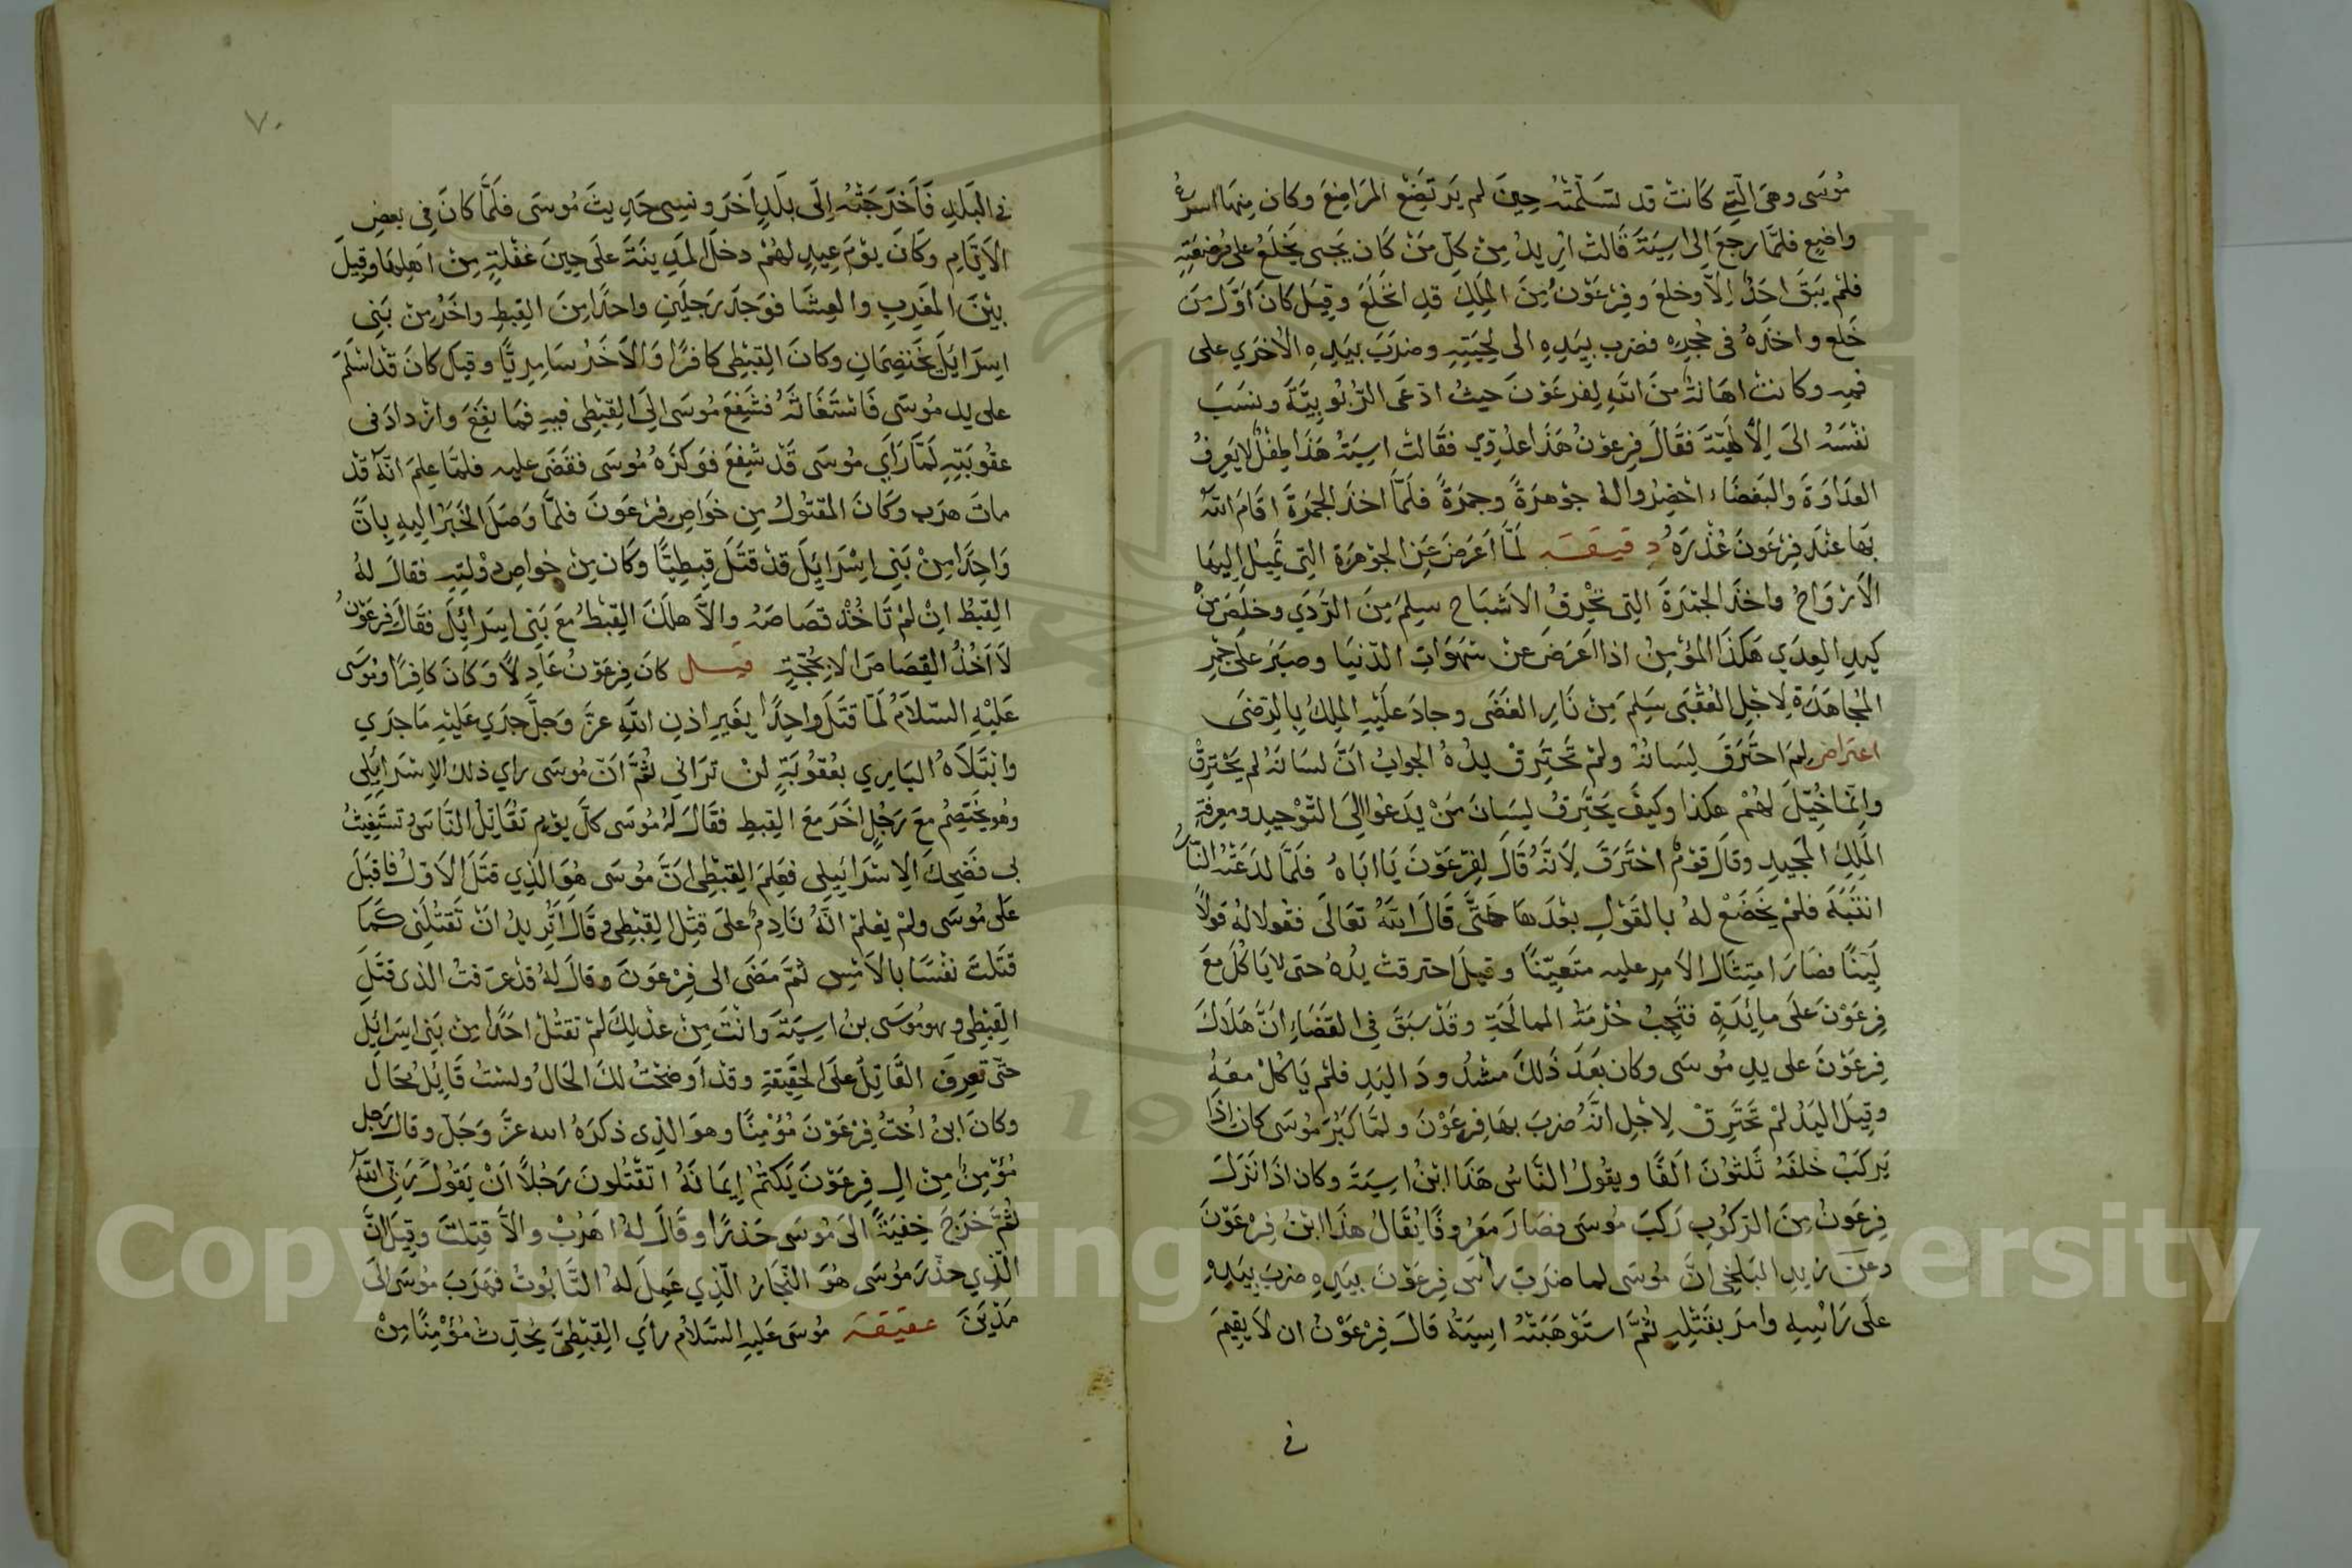 مُوسَى وهى الّتى كَانتْ قد تسَلّمَتْهُ حِينَ لم يَرتَضِعْ المرَاضِعَ وكان مِنهَا اسرعُ
واضِعٍ فلمَّا رجعَ الى اسِيَةَ قَالتْ اُرِيدُ مِنْ كلِّ مَنْ كَان يجبى يَخْلَعُ على مُرضِعَتِهِ
فلمْ يَبَقَ احَدٌ اِلاَّ وخلعَ وفِرْعَوْنُ مِنَ المِلِكِ قدِ انخَلَعَ وقِيلَ كَانَ اَوَّلَ مَنَ
خَلع واخذَهُ فى حُجرِه فضرب بيَدِهِ الى لِحْيَتِهِ وضرَبَ بيَدِهِ الأخرَي على
فمهِ وكانتْ اهَانةٌ منَ اللهِ لِفرعَوْنَ حيثُ ادّعَى الرُّبُوبِيَّةَ ونسَبَ
نفْسَهُ الىَ الأُلهِيّةَ فقَالَ فِرعوْنُ هَذَا عدُوّي فقَالتْ اسِيَةُ هَذَا طِفْلٌ لا يَعرِفُ
العدَاوَةَ والبَغضَاءَ احْضِرُوا لهُ جوْهرَةً وجمرَةً فلَمّا اخذَ الجمَرَةَ اقَامَ اللهُ
بهَا عنْدَ فِرْعَونَ عُذْرَهُ دِقيقَة لَمّا اَعَرَضَ عَنِ الجوْهَرَةِ التِى تمِيلُ اِليهَا
الاَرْوَاحُ واخذَ الجمَرَةَ التِى تحْرِقُ الاَشبَاحَ سلِمَ مِنَ الرّدَي وخلَصَ مِنْ
كيدِ العِدَي هَكذَا المؤمِنُ اذا اعَرَضَ عنْ شهَوَاتِ الدّنيَا وصبَرَ علَى جَمْرِ
المجُاهَدَةِ لِاجْلِ العُقْبَى سَلِمَ مِنْ نَارِ الغَضَى وجادَ علَيْهِ المِلكُ بِالرّضَى
اعتراض لِمَ احتَرَقَ لِسَانُهُ ولمْ تَحَتَرِقْ يدُهُ الجوابُ انَّ لسَانَهُ لم يَحْترِقْ
وانّما خُيّلَ لهُمْ هكذا وكيفَ يَحَترِقُ لِسَانَ مَنْ يدَعُوا الِىَ التَوْحِيدِ ومعرِفةِ
المَلِكِ المجِيدِ وقالَ قوْمٌ احْتَرَقَ لِاَنّهُ قَالَ لِفِرْعَوْنَ يَا ابَاهُ فلَمّا لدَعَتْهُ النّارُ
انتَبَهَ فلمْ يَخَضَعْ لهُ بالقَوْلِ بعْدَهَا حَتّىَ قَالَ اللهُ تعَالَى فقُولا لهُ قولاً
لَيّنًا فصَارَ امتِثَالُ الاَمرِ عليه متَعيّنًا وقيلَ احترقتْ يدُهُ حتى لا يَا كُلَ معَ
فِرعَوْنَ علَى مائِدَةٍ فتَجِبُ حُرْمَةُ الممالحَةِ وقَدْ سبَقَ فِى القَضَاءِ انَّ هَلاَكَ
فِرعَوْنَ على يدِ مُوسَى وكان بَعدَ ذَلكَ مشدُودَ اليَدِ فلمْ يَا كُلْ معَهُ
وقيَلَ اليَدُ لمْ تَحَترِقْ لِاجْلِ انَّهُ ضرَبَ بهَا فِرعَوْنَ ولمّا كَبُرَ مُوسَى كان اِذَا
يَركَبْ خلفَهُ ثَلثوُنَ اَلفًا ويقُولُ النَّاسُ هَذَا ابْنُ اسِيَةَ وكان اذَا نَزَلَ
فِرعَونُ مِنَ الرّكُوبِ رَكبَ مُوسَى فصَارَ معَرُوفًا يُقَالُ هذَا ابْنُ فِرْعَوْنَ
وعَن زيدِ البَلْخِى انَّ مُوسَى لما ضرَبَ رأسَ فِرعَوْنَ بيَدِهِ ضرَبَ بيَدِهِ
علَى رَاسِهِ وامرَ بقَتْلِهِ ثمَّ استَوْهَبَتْهُ اسِيَةُ قَالَ فِرْعَوْنُ ان لاَ يقيَمَ
فى
٧٠
فى البَلَدِ فَأَخرَجَتْهُ اِلَى بلَدٍ اَخرَ ونسِى حَدِيثَ مُوسَى فلَمَّا كانَ فِى بعضِ
الاَيّامِ وكَانَ يوْمَ عِيدٍ لهُمْ دخلَ المَدِينَةَ علَى حِينَ غفْلَةٍ مِنْ اهَلِهَا وقِيلَ
بيْنَ المغَرِبِ والعِشَا فوَجدَ رَجُلَينِ واحدًا مِنَ القِبطِ واخَرُ مِنْ بَنِى
اسِرَايلَ يخَتصِمَانِ وكانَ القِبْطِى كافرًا وَالاَخَرُ سامِرِيّا وقيلَ كانَ قدْ اسْلَمَ
على يدِ مُوسَى فَاسْتَغَاثَهُ فشفِعَ مُوسَى الِىَ القِبْطِى فيهِ فمَا نفِعَ وازْدادَ فى
عقُوبَتِهِ لَمّا رَاَي مُوسَى قَدْ شفِعَ فوَكزَهُ مُوسَى فقضَى عليه فلمَّا علِمَ انّهُ قدْ
ماتَ هرَب وكَانَ المقتوُلُ مِن خَواصِ فِرْعَونَ فلمَّا وَصَلَ الخَبَرُ اليهِ بِانَّ
وَاحِدًا مِنْ بَنِى اسْرَايِلَ قدْ قتَلَ قِبطِيّا وكَان مِنْ خواصِ دوْلتِهِ فقالَ لهُ
القِبْطُ انْ لمْ تَاخُذْ قصَاصَهُ والاَّ هلَكَ القِبْطُ معَ بَنى اسِرَايلَ فقَالَ فِرعَوْنُ
لاَ اخُذُ القِصَاصَ الاَّ بِحُجّةٍ قيل كانَ فِرعَوْنُ عَادِلاً وَكانَ كافِرًا ومُوسَى
عَليْهِ السّلاَمُ لمّا قتَلَ واحِدًا بغَيرِ اذنِ اللهِ عزَّ وَجلَّ جرَي علَيْهِ مَا جرَي
وابْتَلاَهُ البَارِي بعُقُوبَةٍ لنْ ترَانِى ثُمَّ انّ مُوسَى راي ذلك الاِسْرَايَلِى
وهُو يَختَصِمُ معَ رَجُلٍ اخَرَ معَ القِبطِ فقَالَ لَهُ مُوسَى كلَّ يوْمٍ تقُاتِلُ النَّاسَ وتستَغِيثُ
بى فضَحِكَ الاِسْرَايَيلِى فعَلِمَ القِبْطِى انَّ مُوسَى هُوَ الّذِي قتَلَ الاَوّلُ فاقبَلَ
علَى مُوسَى ولمْ يعْلمْ انّهُ نَادِمٌ علىَ قتْلِ القِبْطِى وقَالَ اتُرِيدُ انْ تَقتُلَنِى كَمَا
قتَلتَ نفْسَا بالاَمْسِ ثمَّ مَضَى الى فِرْعَونَ وقالَ لهُ قدْ عرَفتُ الذى قتَلَ
القِبْطِى وهو مُوسَى بنُ اسِيَةَ وانْتَ مِنْ عَدْلِكَ لمْ تقتُلْ احَدًا مِنْ بَنِى اسِرَايِلَ
حتّى تعرِفَ القَاتِلُ علَى الحَقِيقَةِ وقدْ اَوضحْتُ لكَ الحَالُ ولسْتُ قَايِلُ مُحَالٌ
وكانَ ابنُ اُختُ فِرْعَوْنَ مُؤمِنًا وهوَ الّذِى ذكرَهُ الله عزَّ وَجلّ وقالَ رَجل
مُؤمِنٌ مِنْ الِ فِرعَوْنَ يَكتُمُ اِيمَانَهُ اتقْتُلونَ رَجُلاً اَنْ يقَولَ رَبّىَ اللهُ
ثُمَّ خرَجَ خِفيَةً الىَ مُوسَى حَذرًا وقَالَ لهُ اهَرُبْ والاَّ قتِلتَ وقِيلَ انَّ
الّذِي حذّرَ مُوسَى هُوَ النّجَارُ الّذِي عَمِلَ لهُ التَّابُوتُ فهَرَبَ مُوسَى اِلىَ
مَدْينَ عقيقَة مُوسَى عَليهِ السّلاَمُ رأَي القِبْطِىَّ يُحَدِّثُ مُؤمِنًا مِنْ
Copyright © King Saud University